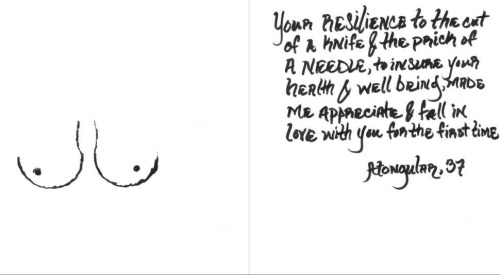 Your Resilience to the cut
of a knife & the prick of
a needle, to insure your
health & well being, made
me appreciate & fall in
love with you for the first time
Atongular, 37